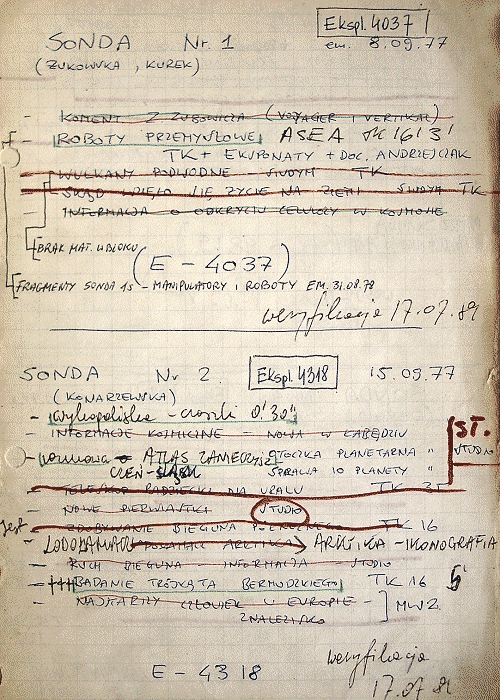 Ekspl. 4037
SONDA Nr. 1 em. 8.09.77
(ŻUKOWSKA, KUREK)
- KOMENT. Z ZUBOWICZA (VOYAGER I VERTIKAL)
- ROBOTY PRZEMYSŁOWE ASEA TK 16'3'
TK + EKSPONATY + DOC. ANDRZEJCZAK
- WULKANY PODWODNE TK
- SKĄD WZIĘŁO SIĘ ŻYCIE NA ZIEMI TK
- INFORMACJA O ODKRYCIU CELULOZY W KOSMOSIE
BRAK MAT. U BLOKU
(E - 4037)
FRAGMENTY SONDA 15 - MANIPULATORY I ROBOTY EM. 31.08.78
weryfikacja 17.07.89
SONDA Nr 2 Ekspl. 4318 15.09.77
(KONARZEWSKA)
- 0'30"
INFORMACJE KOSMICZNE - NOWA W ŁABĘDZIU ST.
- ATLAS OTOCZKA PLANETARNA " STUDIO
SPRAWA 10 PLANETY "
- TELESKOP RADZIECKI NA URALU TK
- NOWE PIERWIASTKI STUDIO
jest - ZDOBYWANIE BIEGUNA PÓŁNOCNEGO TK 16
- LODOŁAMACZ ARKTIKA → ARKTIKA - IKONOGRAFIA
- RUCH BIEGUNA INFORMACJA STUDIO
- BADANIE TRÓJKĄTA BERMUDZKIEGO TK 16 5'
- NAJSTARSZY CZŁOWIEK W EUROPIE -
ZNALEZISKO
E - 4318 weryfikacja